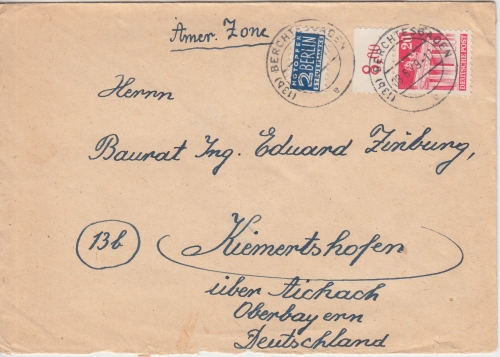 Amer. Zone
(13b) BERCHTESGADEN
NOTOPFER
2 BERLIN
STEUERMARKE
(13b) BERCHTESGADEN
a
20
DEUTSCHE POST
a
Herrn
Baurat Ing. Eduard Zinburg,
13b
Kiemertshofen
über Aichach
Oberbayern
Deutschland